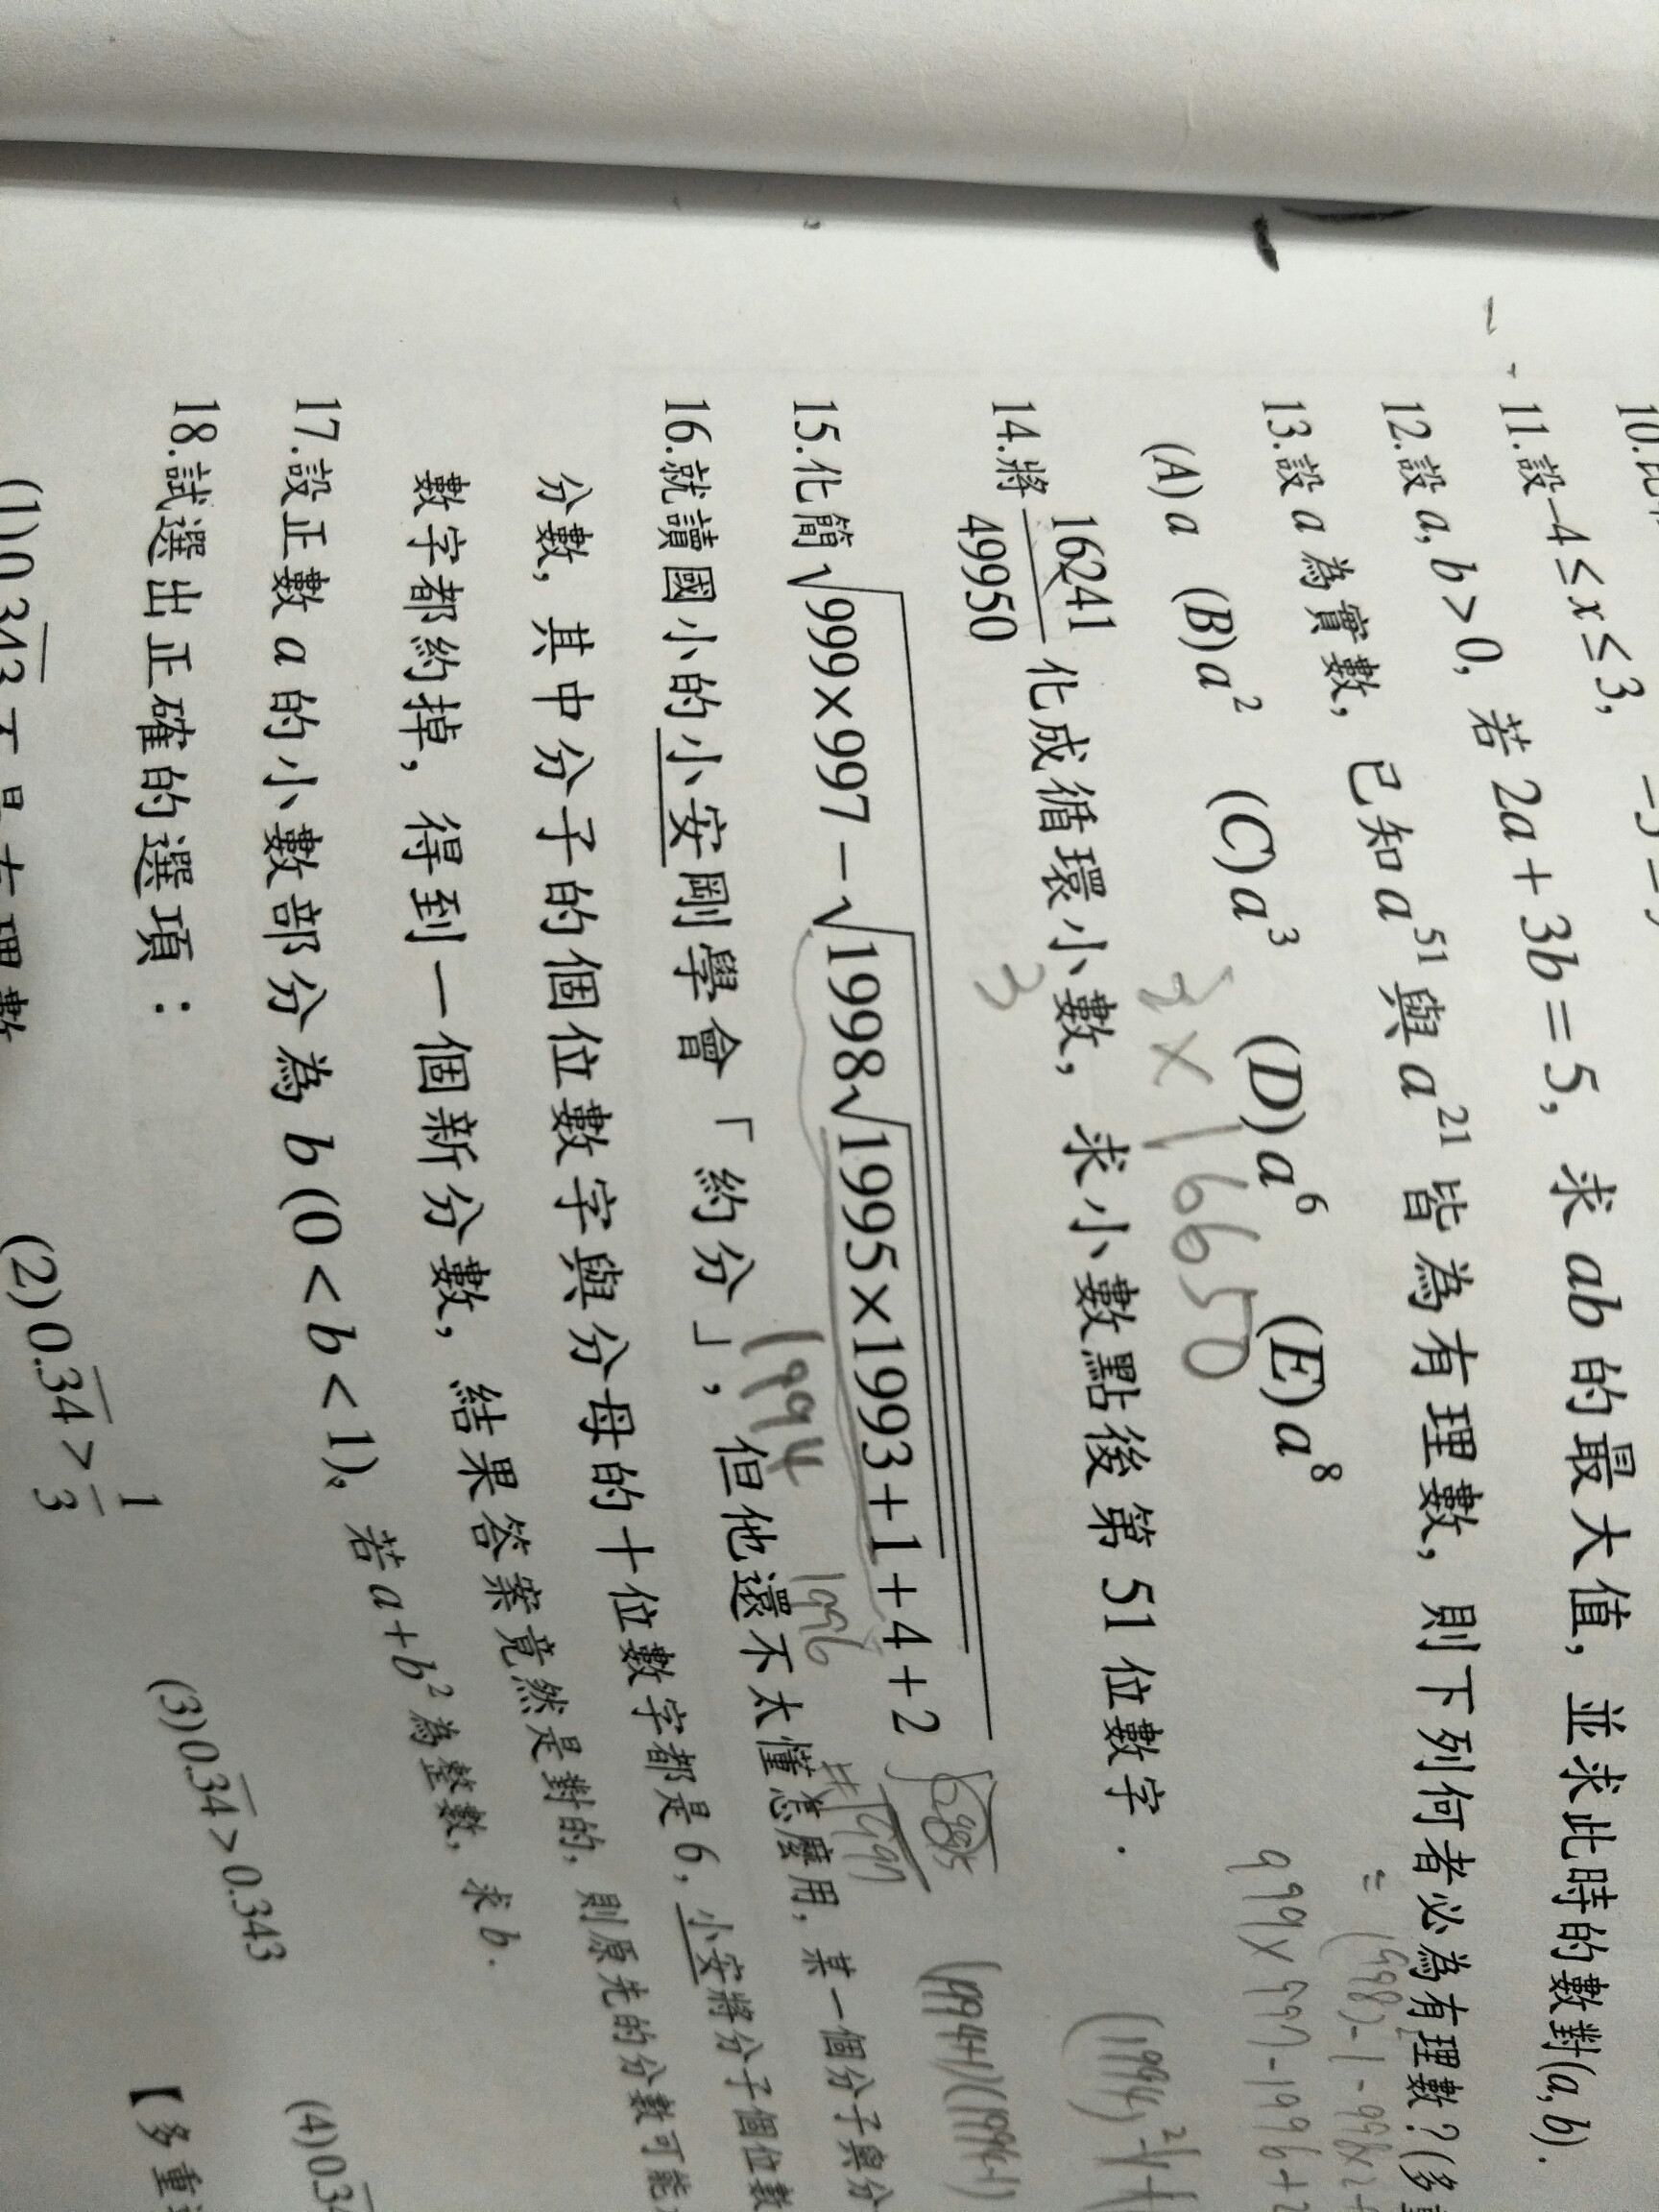 10.
11.設 -4 ≤ x ≤ 3,
12.設 a, b > 0, 若 2a + 3b = 5, 求 ab 的最大值, 並求此時的數對(a, b).
13.設 a 為實數, 已知 a^51 與 a^21 皆為有理數, 則下列何者必為有理數?(多
(A) a (B) a^2 (C) a^3 (D) a^6 (E) a^8
14.將 16241/49950 化成循環小數, 求小數點後第 51 位數字.
3 × 16650
3
999×997-1996+2
15.化簡 √(999×997 − √(1998√(1995×1993+1)+4)+2)
1994
1996
(1994+1)(1994-1)
16.就讀國小的小安剛學會「約分」, 但他還不太懂怎麼用, 某一個分子與分
分數, 其中分子的個位數字與分母的十位數字都是 6, 小安將分子個位數
數字都約掉, 得到一個新分數, 結果答案竟然是對的, 則原先的分數可能
17.設正數 a 的小數部分為 b (0 < b < 1), 若 a + b^2 為整數, 求 b.
18.試選出正確的選項:
【多重
(2) 0.3̅4̅ > 1/3 (3) 0.3̅4̅ > 0.343